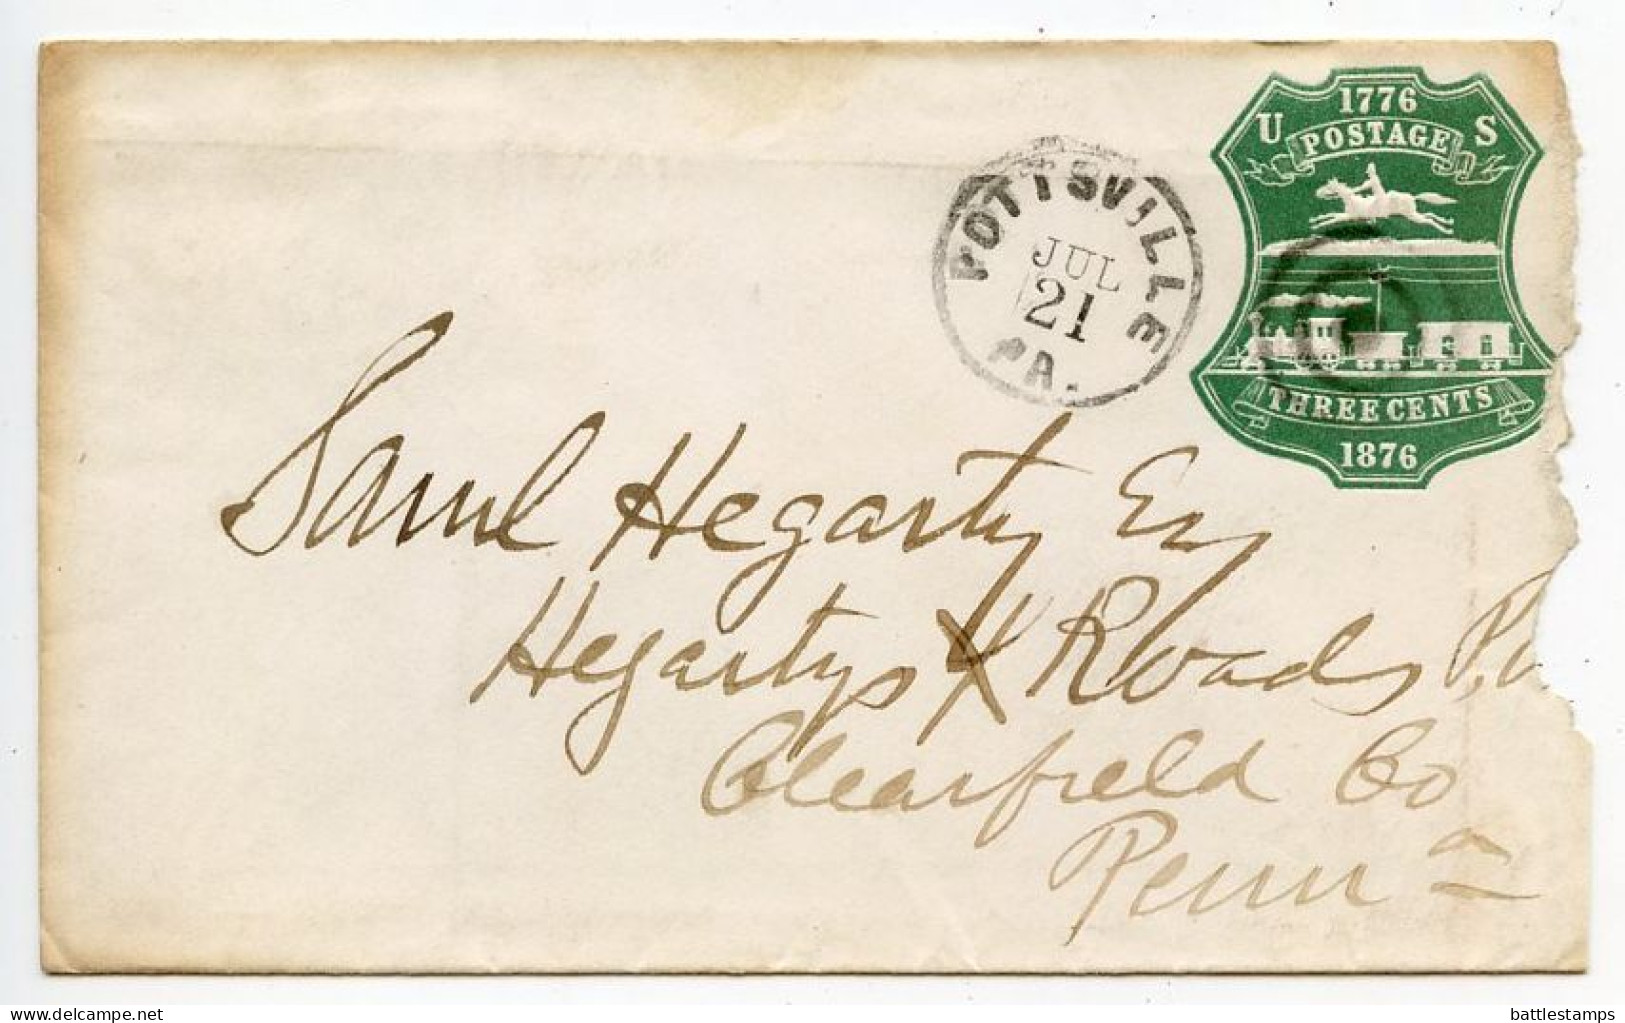 1776
U S
POSTAGE
POTTSVILLE
JUL
21
PA.
THREE CENTS
1876
Saml Hegarty Esq
Hegartys X Roads P.O
Clearfield Co
Penna
delcampe.net
battlestamps